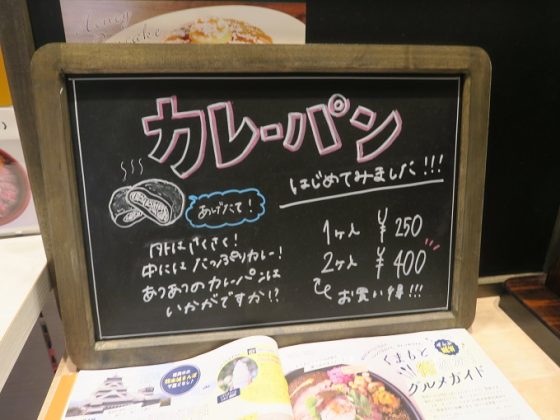 Honey Pancake
カレーパン
はじめてみました!!!
あげたて!
外はさくさく!
中にはたっぷりカレー!
あつあつのカレーパンは
いかがですか!?
1ヶ入 ¥250
2ヶ入 ¥400
お買い得!!!
くまもと
グルメガイド